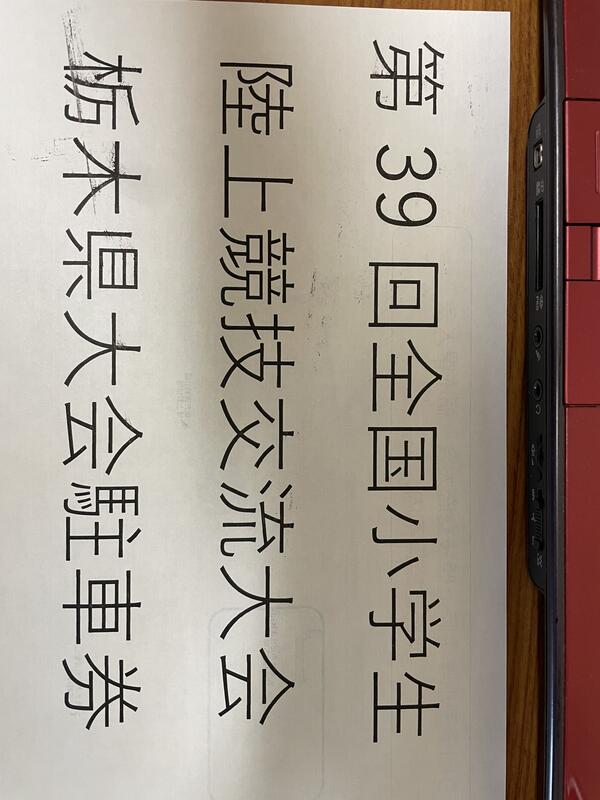 第 39 回全国小学生
陸上競技交流大会
栃木県大会駐車券